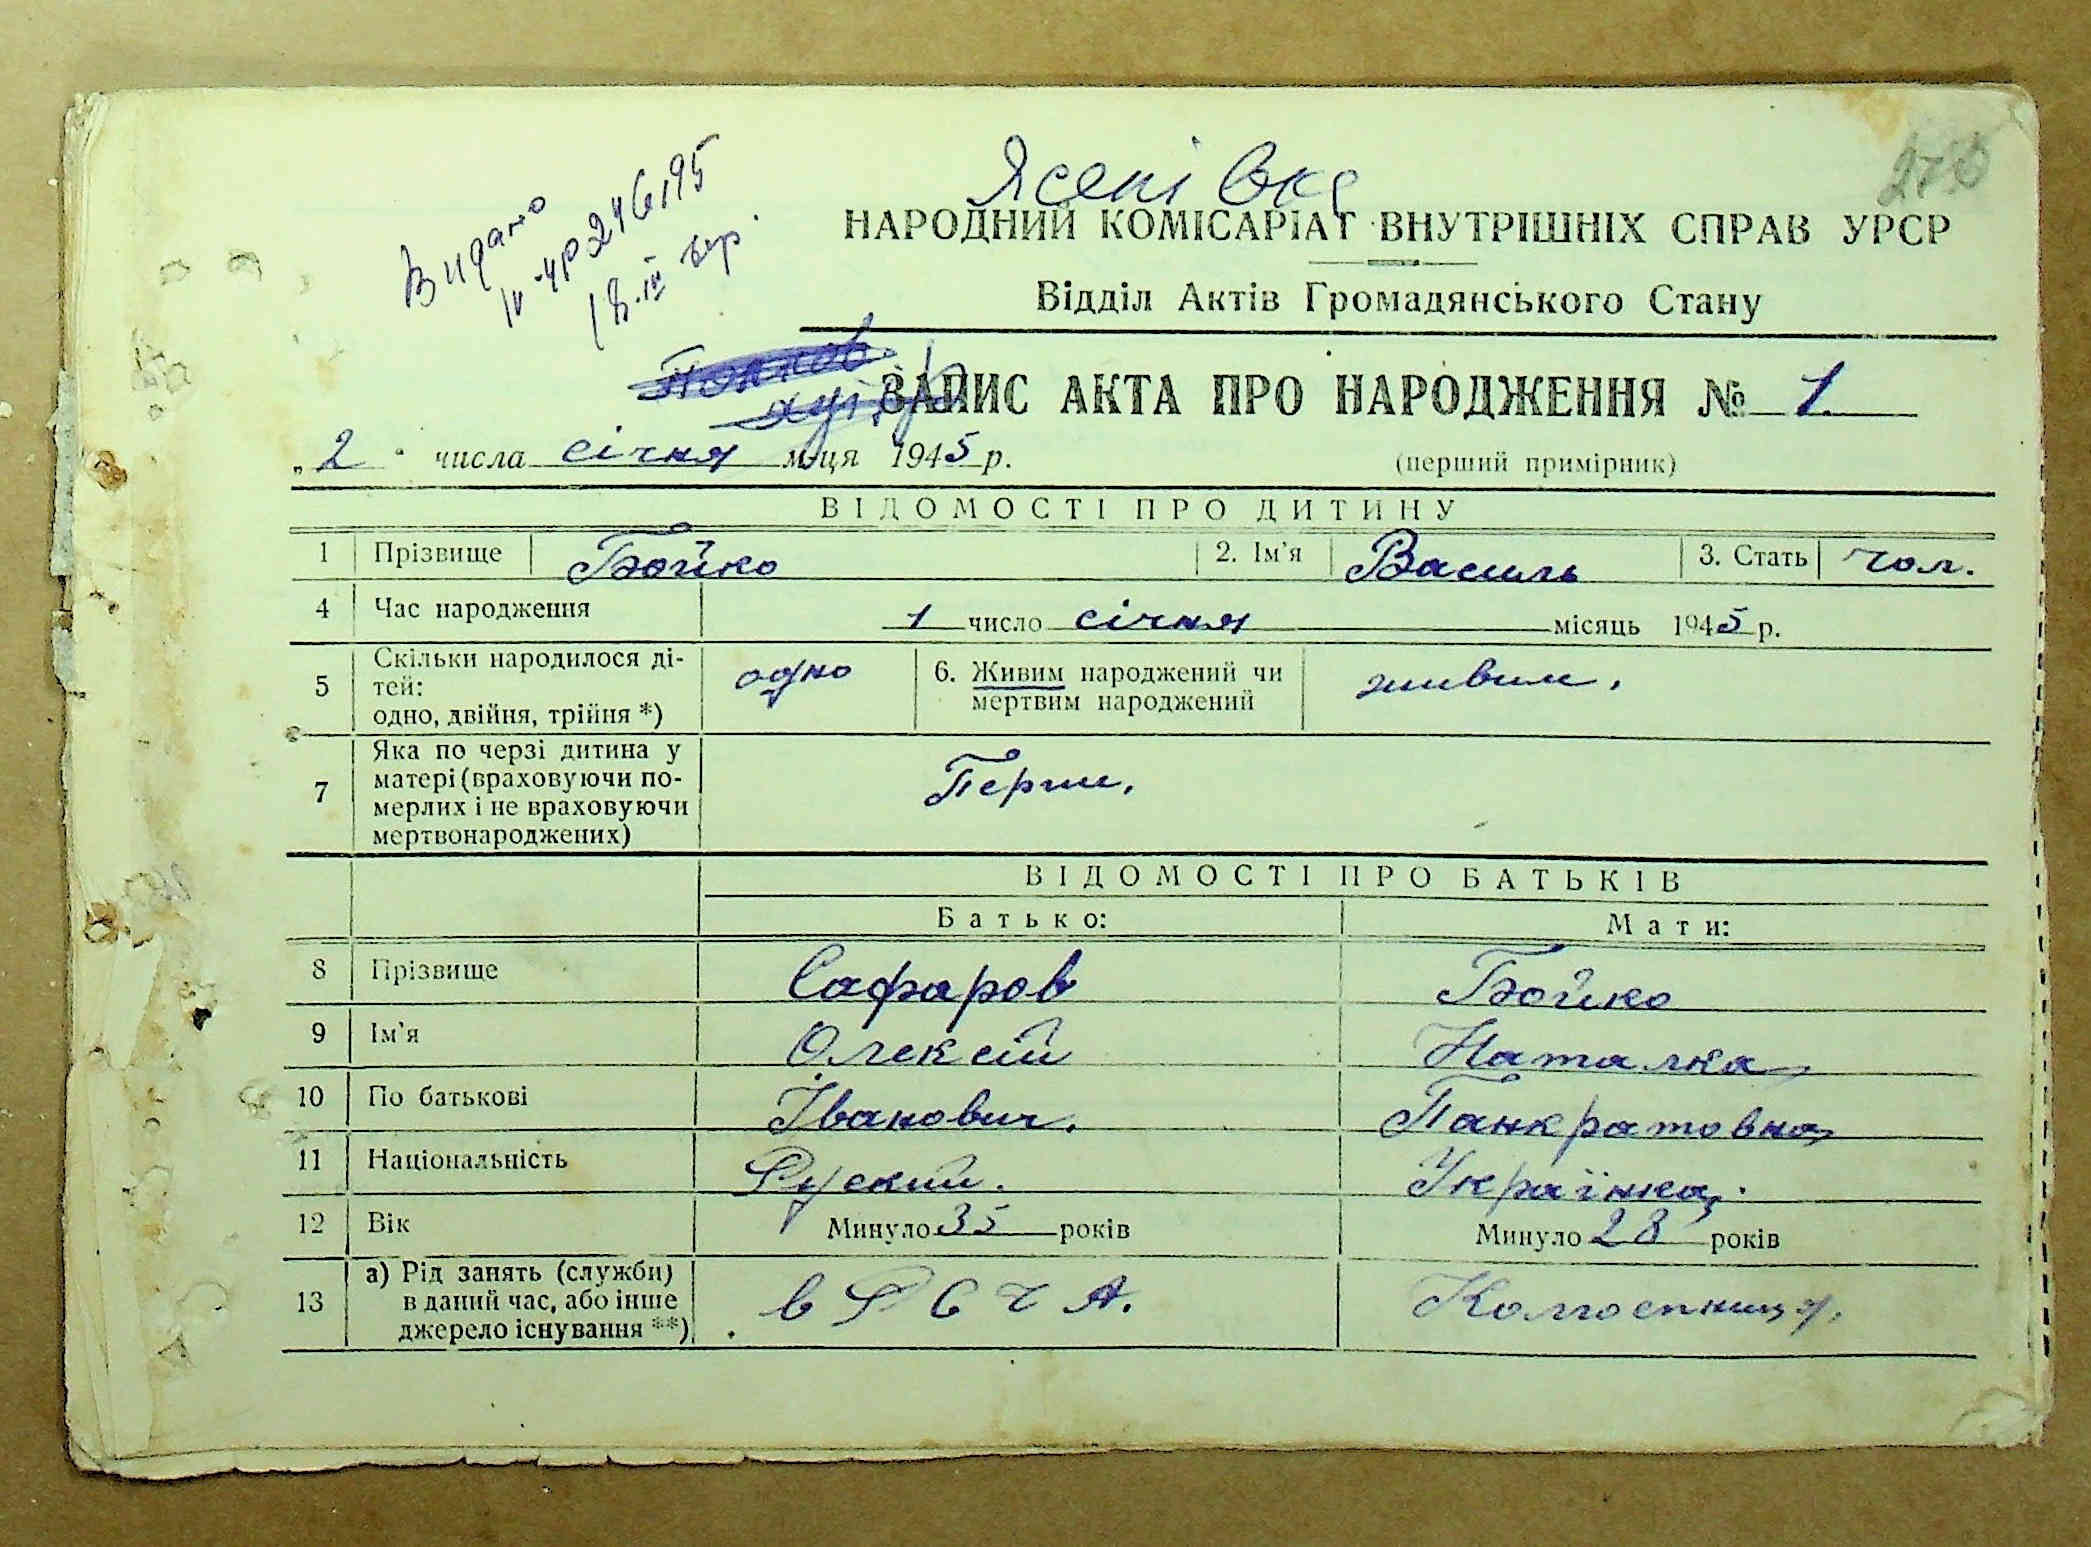 Ясенівка
276
НАРОДНИЙ КОМІСАРІАТ ВНУТРІШНІХ СПРАВ УРСР
Відділ Актів Громадянського Стану
Видано
ІV-УР 246195
18.ІІІ
ЗАПИС АКТА ПРО НАРОДЖЕННЯ № 1.
„2“ числа січня м-ця 1945 р.
(перший примірник)
ВІДОМОСТІ ПРО ДИТИНУ
1 Прізвище Бойко 2. Ім'я Василь 3. Стать чол.
4 Час народження 1 число січня місяць 1945 р.
5 Скільки народилося ді-
тей:
одно, двійня, трійня *) одно 6. Живим народжений чи
мертвим народжений живим.
7 Яка по черзі дитина у
матері (враховуючи по-
мерлих і не враховуючи
мертвонароджених) Перши.
ВІДОМОСТІ ПРО БАТЬКІВ
Батько: Мати:
8 Прізвище Сафаров Бойко
9 Ім'я Олексій Наталка
10 По батькові Іванович. Панкратовна
11 Національність Руский. Українка.
12 Вік Минуло 35 років Минуло 28 років
13 а) Рід занять (служби)
в даний час, або інше
джерело існування **) в РСЧА. Колгоспниця.